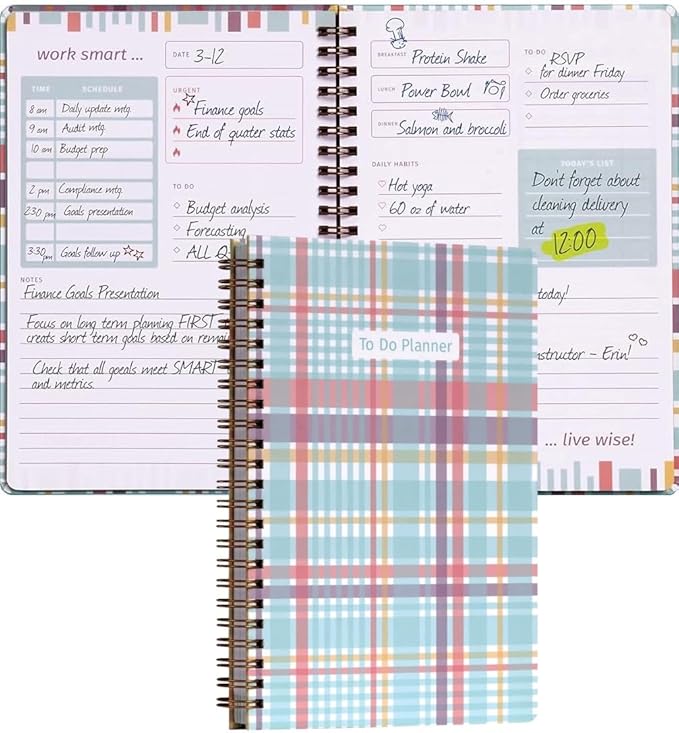 work smart ...
DATE 3-12
TIME SCHEDULE
8 am Daily update mtg.
9 am Audit mtg.
10 am Budget prep
2 pm Compliance mtg.
2:30 pm Goals presentation
3:30 pm Goals follow up
URGENT
Finance goals
End of quater stats
TO DO
Budget analysis
Forecasting
ALL Q
NOTES
Finance Goals Presentation
Focus on long term planning FIRST
creats short term goals based on remai
Check that all goeals meet SMART
and metrics.
BREAKFAST Protein Shake
LUNCH Power Bowl
DINNER Salmon and broccoli
DAILY HABITS
Hot yoga
60 oz of water
TO DO
RSVP
for dinner Friday
Order groceries
TODAY'S LIST
Don't forget about
cleaning delivery
at 12:00
today!
structor - Erin!
... live wise!
To Do Planner